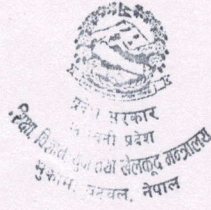 प्रदेश सरकार
लुम्बिनी प्रदेश
शिक्षा, विज्ञान, युवा तथा खेलकूद मन्त्रालय
मुकाम, बुटवल, नेपाल